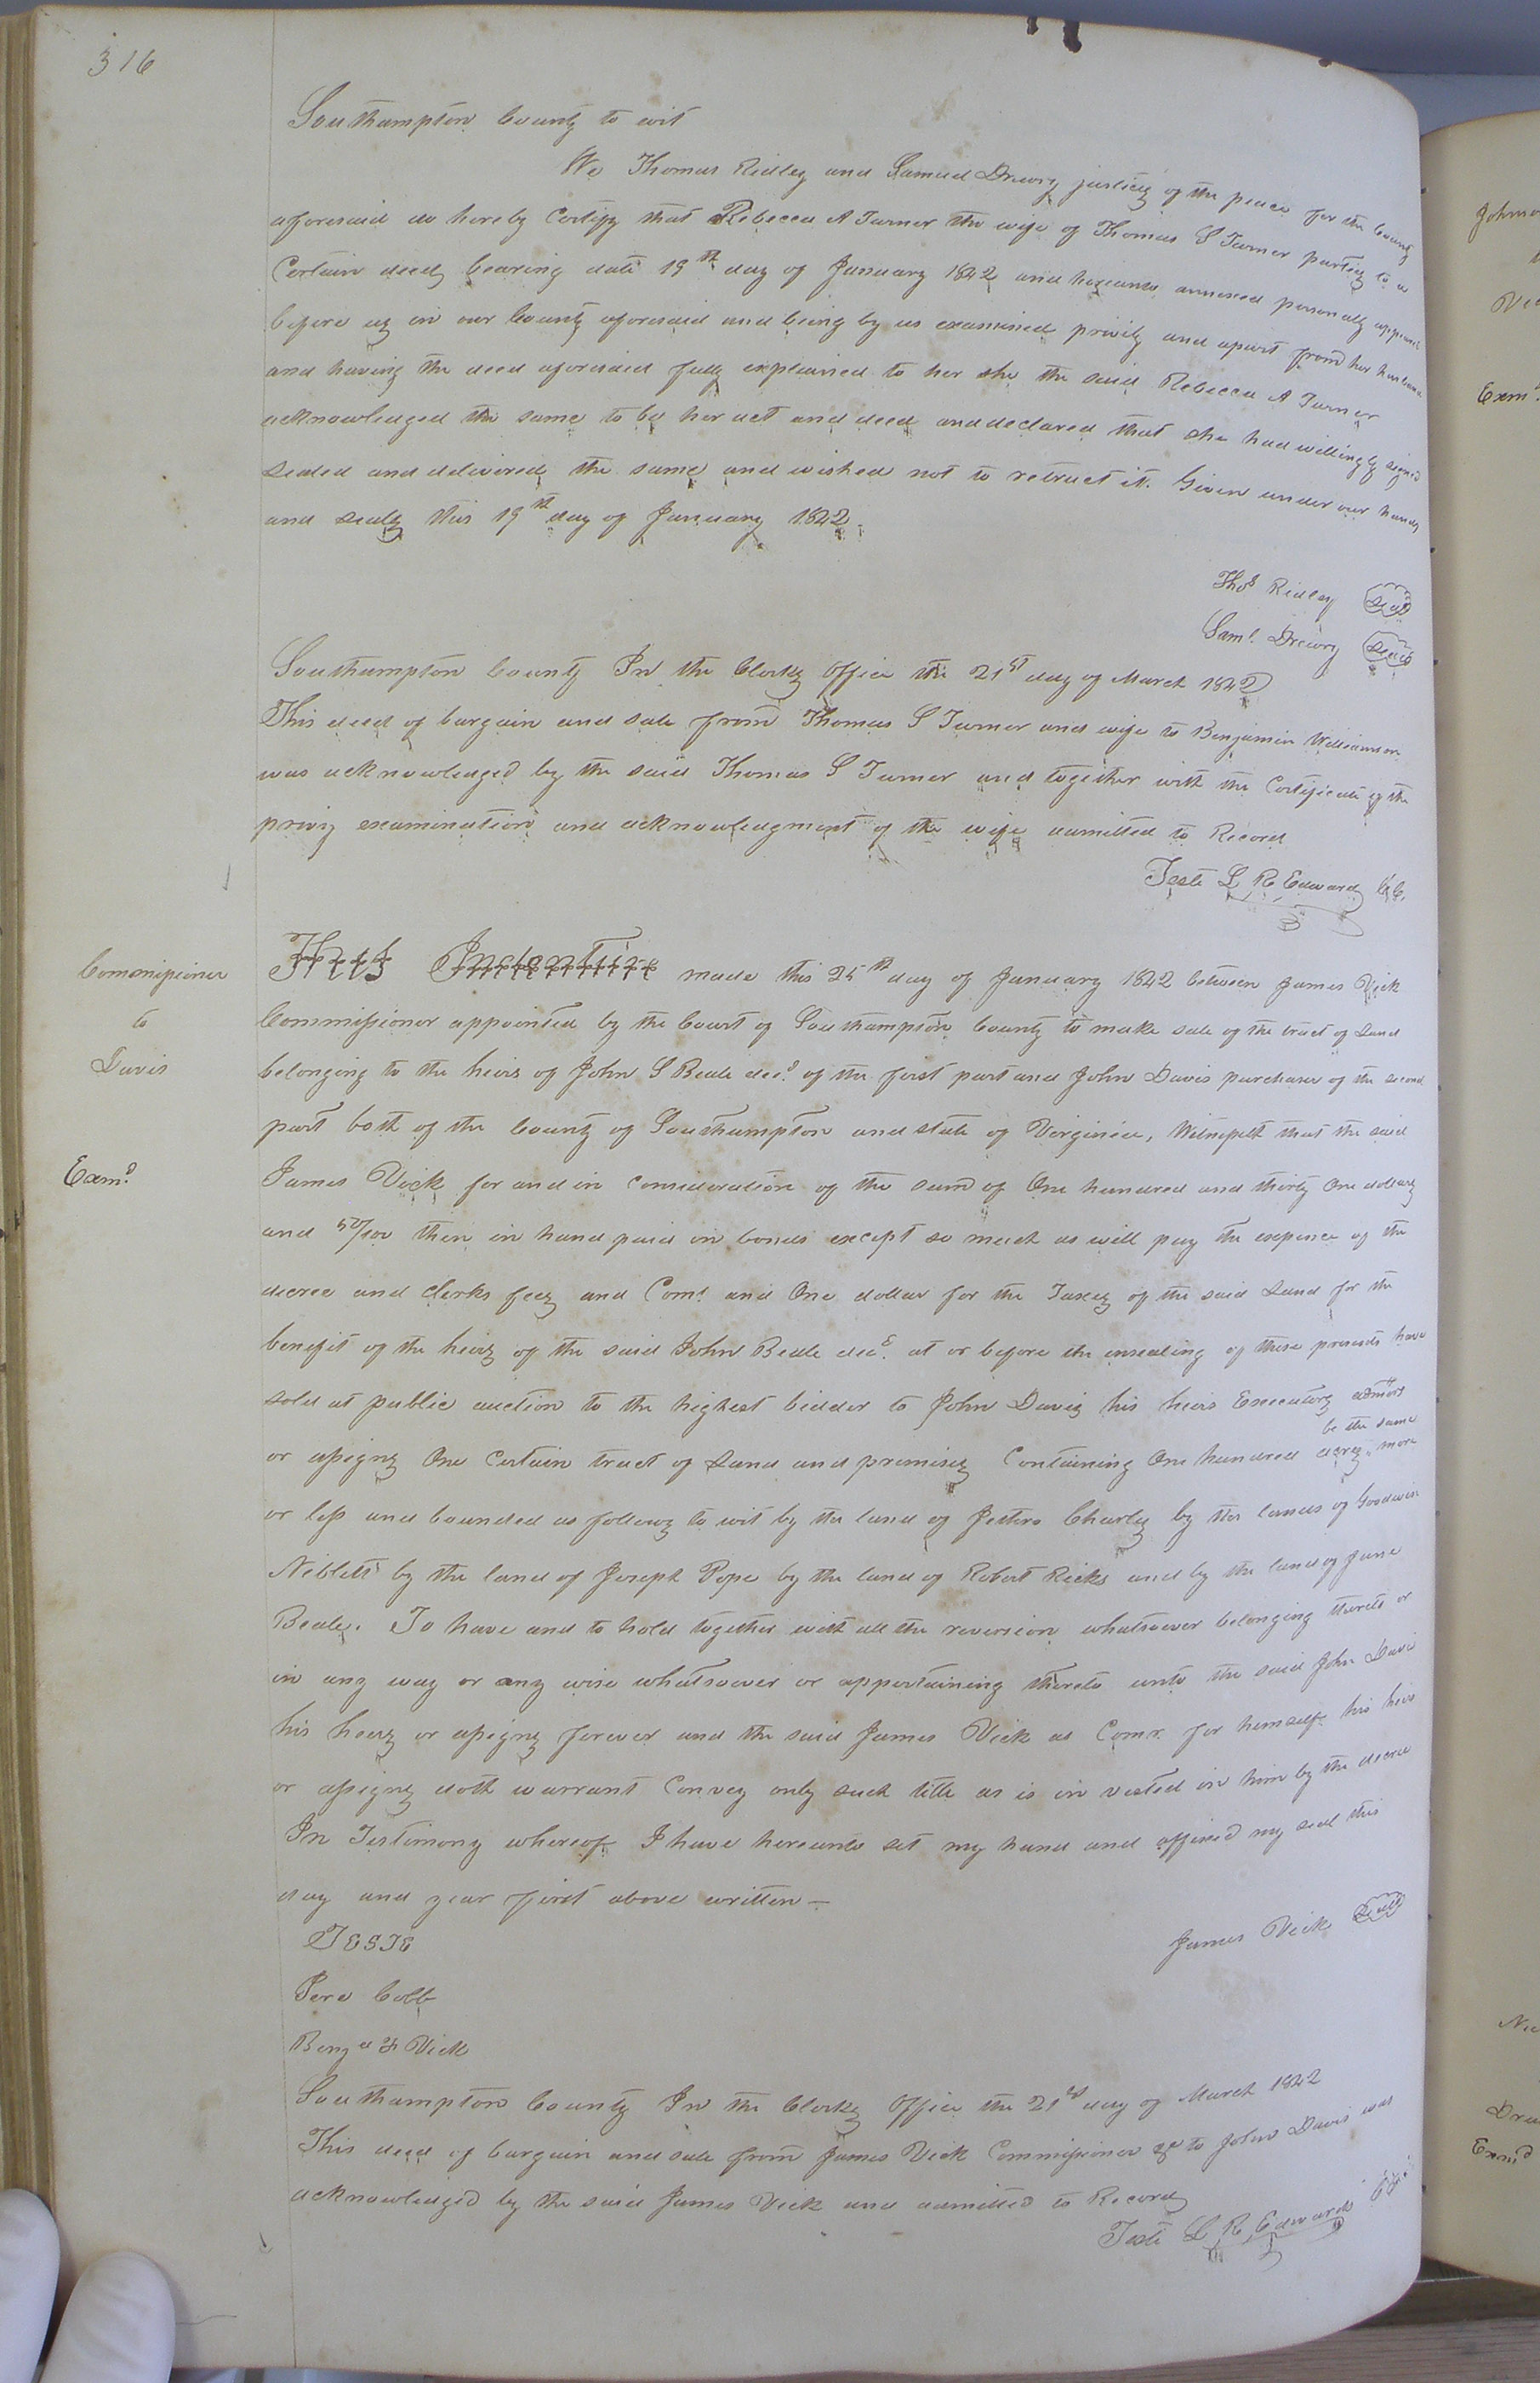 316
Southampton County to wit
We Thomas Ridley and Samuel Drewry justices of the peace for the County
aforesaid do hereby Certify that Rebecca A Turner the wife of Thomas S Turner parties to a
Certain deed bearing date 19th day of January 1842 and hereunto annexed personally appeared
before us in our County aforesaid and being by us examined privily and apart from her husband
and having the deed aforesaid fully explained to her she the said Rebecca A Turner
acknowledged the same to be her act and deed and declared that she had willingly signed
sealed and delivered the same and wished not to retract it. Given under our hands
and seals this 19th day of January 1842.
Thos Ridley Seal
Saml. Drewry Seal
Southampton County In the Clerks Office the 21st day of March 1842
This deed of bargain and sale from Thomas S Turner and wife to Benjamin Williamson
was acknowledged by the said Thomas S Turner and together with the Certificate of the
privy examination and acknowledgment of the wife admitted to Record
Teste L R Edwards CC.
Commissioner
to
Davis
Exmd.
This Indenture made this 25th day of January 1842 between James Vick
Commissioner appointed by the Court of Southampton County to make sale of the tract of Land
belonging to the heirs of John S Beale decd. of the first part and John Davis purchaser of the second
part both of the County of Southampton and state of Virginia, Witnesseth that the said
James Vick for and in consideration of the sum of One hundred and thirty One dollars
and 50/100 then in hand paid in bonds except so much as will pay the expence of the
decree and Clerks fees and Coms. and One dollar for the Taxes of the said Land for the
benefit of the heirs of the said John Beale decd. at or before the ensealing of these presents have
sold at public auction to the highest bidder to John Davis his heirs Executors admors
or assigns One Certain tract of Land and premises Containing One hundred acres be the same more
or less and bounded as follows to wit by the land of Jethro Charles by the lands of Goodwin
Nibletts by the land of Joseph Pope by the land of Robert Ricks and by the land of Jane
Beale. To have and to hold together with all the reversion whatsoever belonging thereto or
in any way or any wise whatsoever or appertaining thereto unto the said John Davis
his heirs or assigns forever and the said James Vick as Comr. for himself his heirs
or assigns doth warrant Convey only such title as is in vested in him by the decree
In Testimony whereof I have hereunto set my hand and affixed my seal this
day and year first above written—
James Vick Seal
TESTE
Pero Cobb
Benja F Vick
Southampton County In the Clerks Office the 21st day of March 1842
This deed of bargain and sale from James Vick Commissioner &c to John Davis was
acknowledged by the said James Vick and admitted to Record
Teste L R Edwards
Exmd.
Exmd